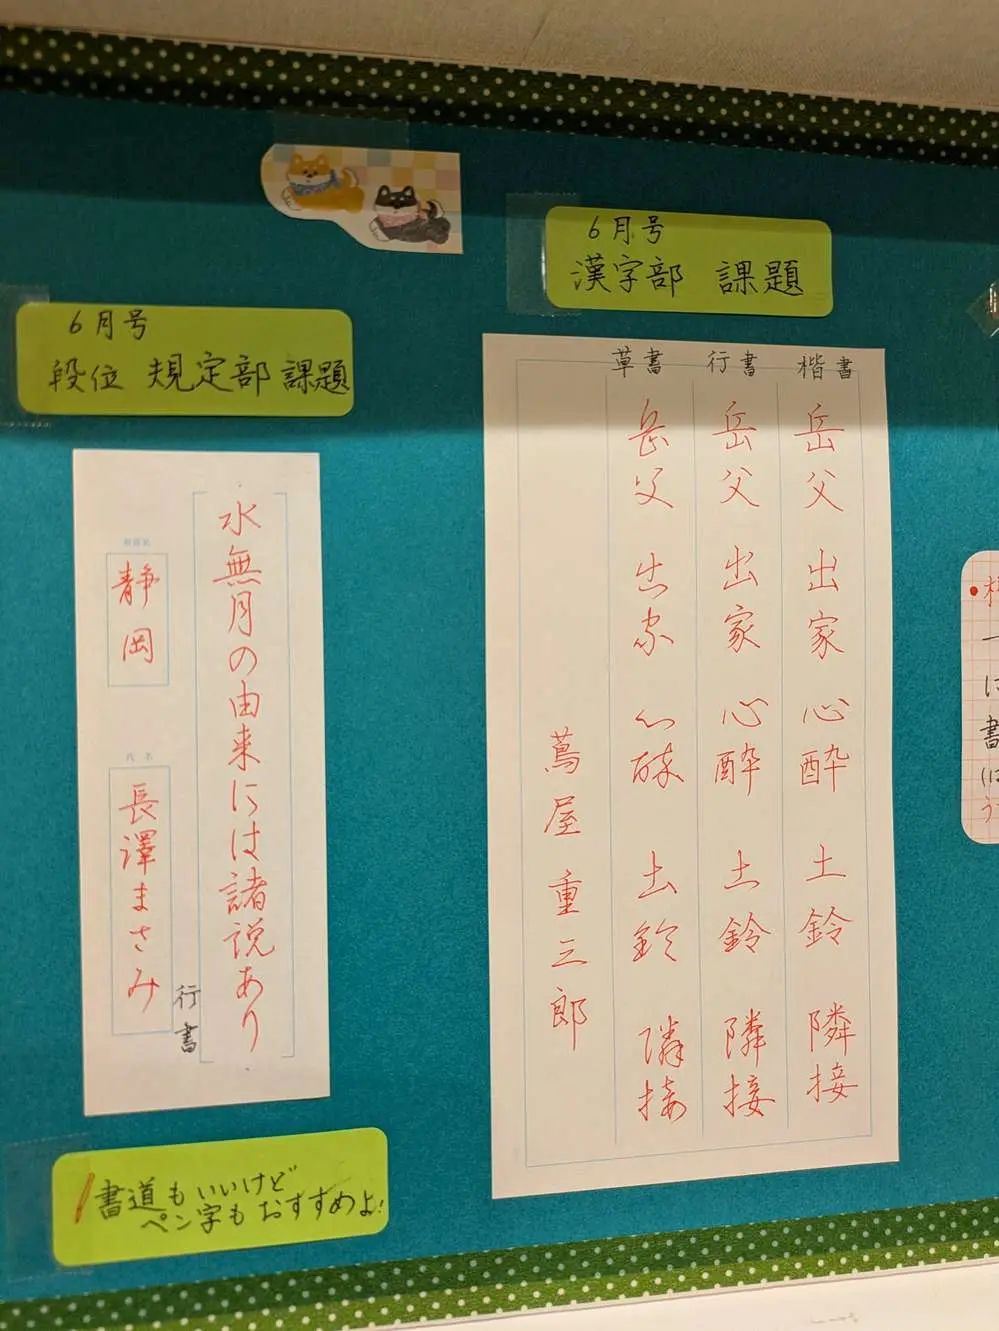 6月号
漢字部 課題
楷書
岳父 出家 心酔 土鈴 隣接
行書
岳父 出家 心酔 土鈴 隣接
草書
岳父 出家 心酔 土鈴 隣接
蔦屋重三郎
6月号
段位 規定部 課題
水無月の由来には諸説あり
行書
静岡
氏名
長澤まさみ
書道もいいけど
ペン字もおすすめよ!